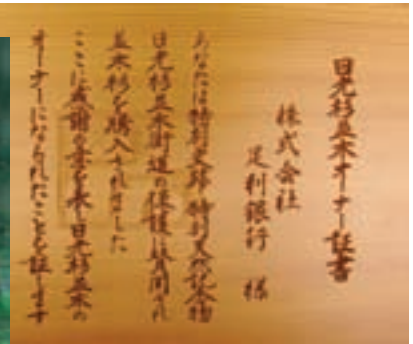 日光杉並木オーナー証書
株式会社
足利銀行 様
あなたは特別史跡・特別天然記念物
日光杉並木街道の保護に賛同され
並木杉を購入されました
ここに感謝の意を表し日光杉並木の
オーナーになられたことを証します